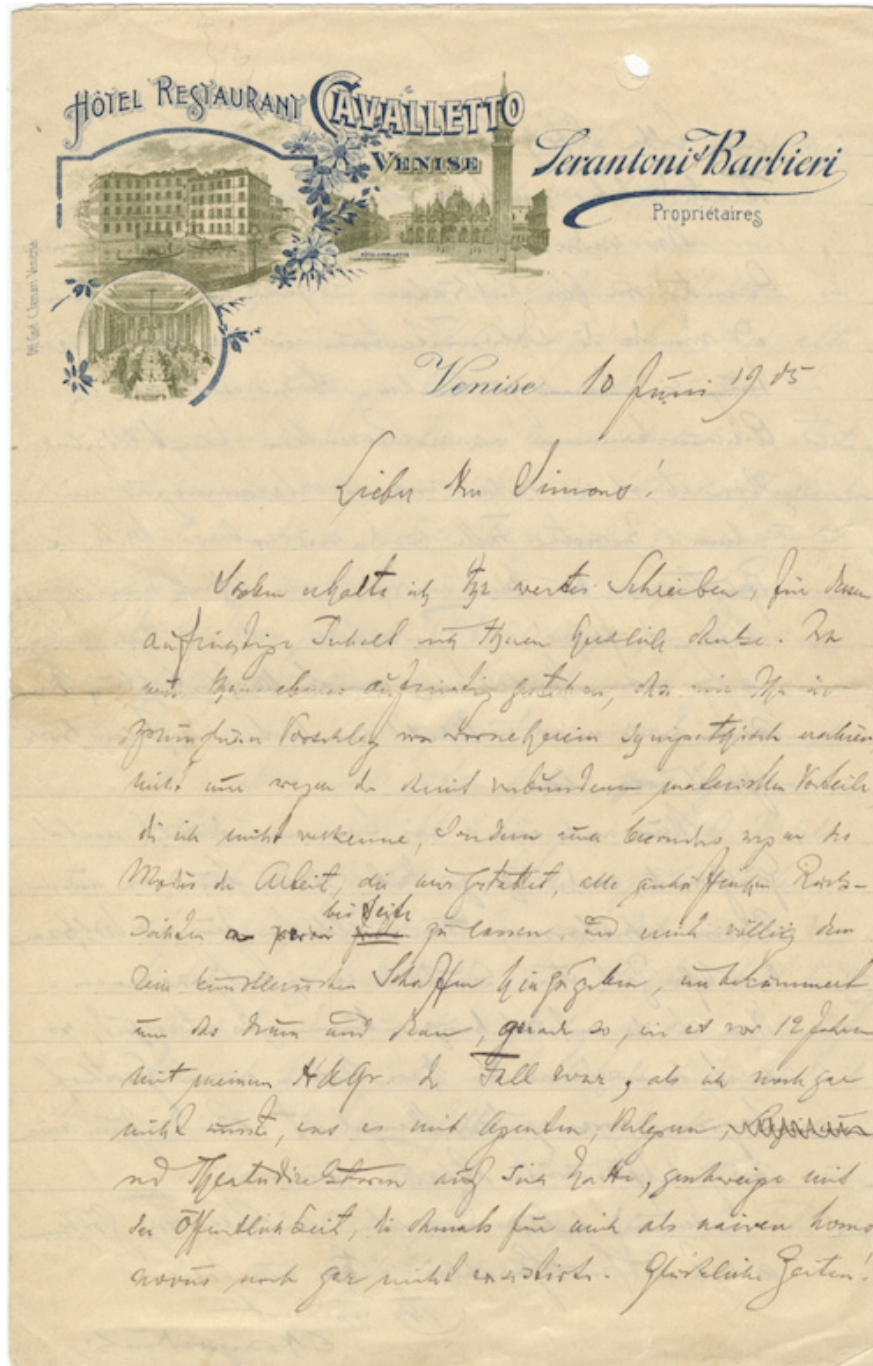 HÔTEL RESTAURANT CAVALLETTO
VENISE
Serantoni & Barbieri
Propriétaires
Venise 10 Juni 1905
Lieber Herr Simons!
Soeben erhalte ich Ihr wertes Schreiben, für dessen
aufrichtigen Inhalt ich Ihnen herzlich danke. Ich
muss Ihnen ebenso aufrichtig gestehen, dass mir Ihr
Vorschlag von vorneherein sympathisch
nicht nur wegen der damit verbundenen materiellen Vorteile,
die ich nicht verkenne, sondern besonders wegen des
Modus der Arbeit, die mir gestattet, alle Rück-
sichten bei Seite zu lassen, und mich völlig dem
rein künstlerischen Schaffen hinzugeben, unbekümmert
um das drum und dran, gerade so, wie es vor 12 Jahren
mit meinem H&Gr. der Fall war, als ich noch gar
nicht wusste, was es mit Agenten, Verlegern,
und Theaterdirektoren auf sich hatte, geschweige mit
der Öffentlichkeit, die damals für mich als naiven homo
novus noch gar nicht existirte. Glückliche Zeiten!